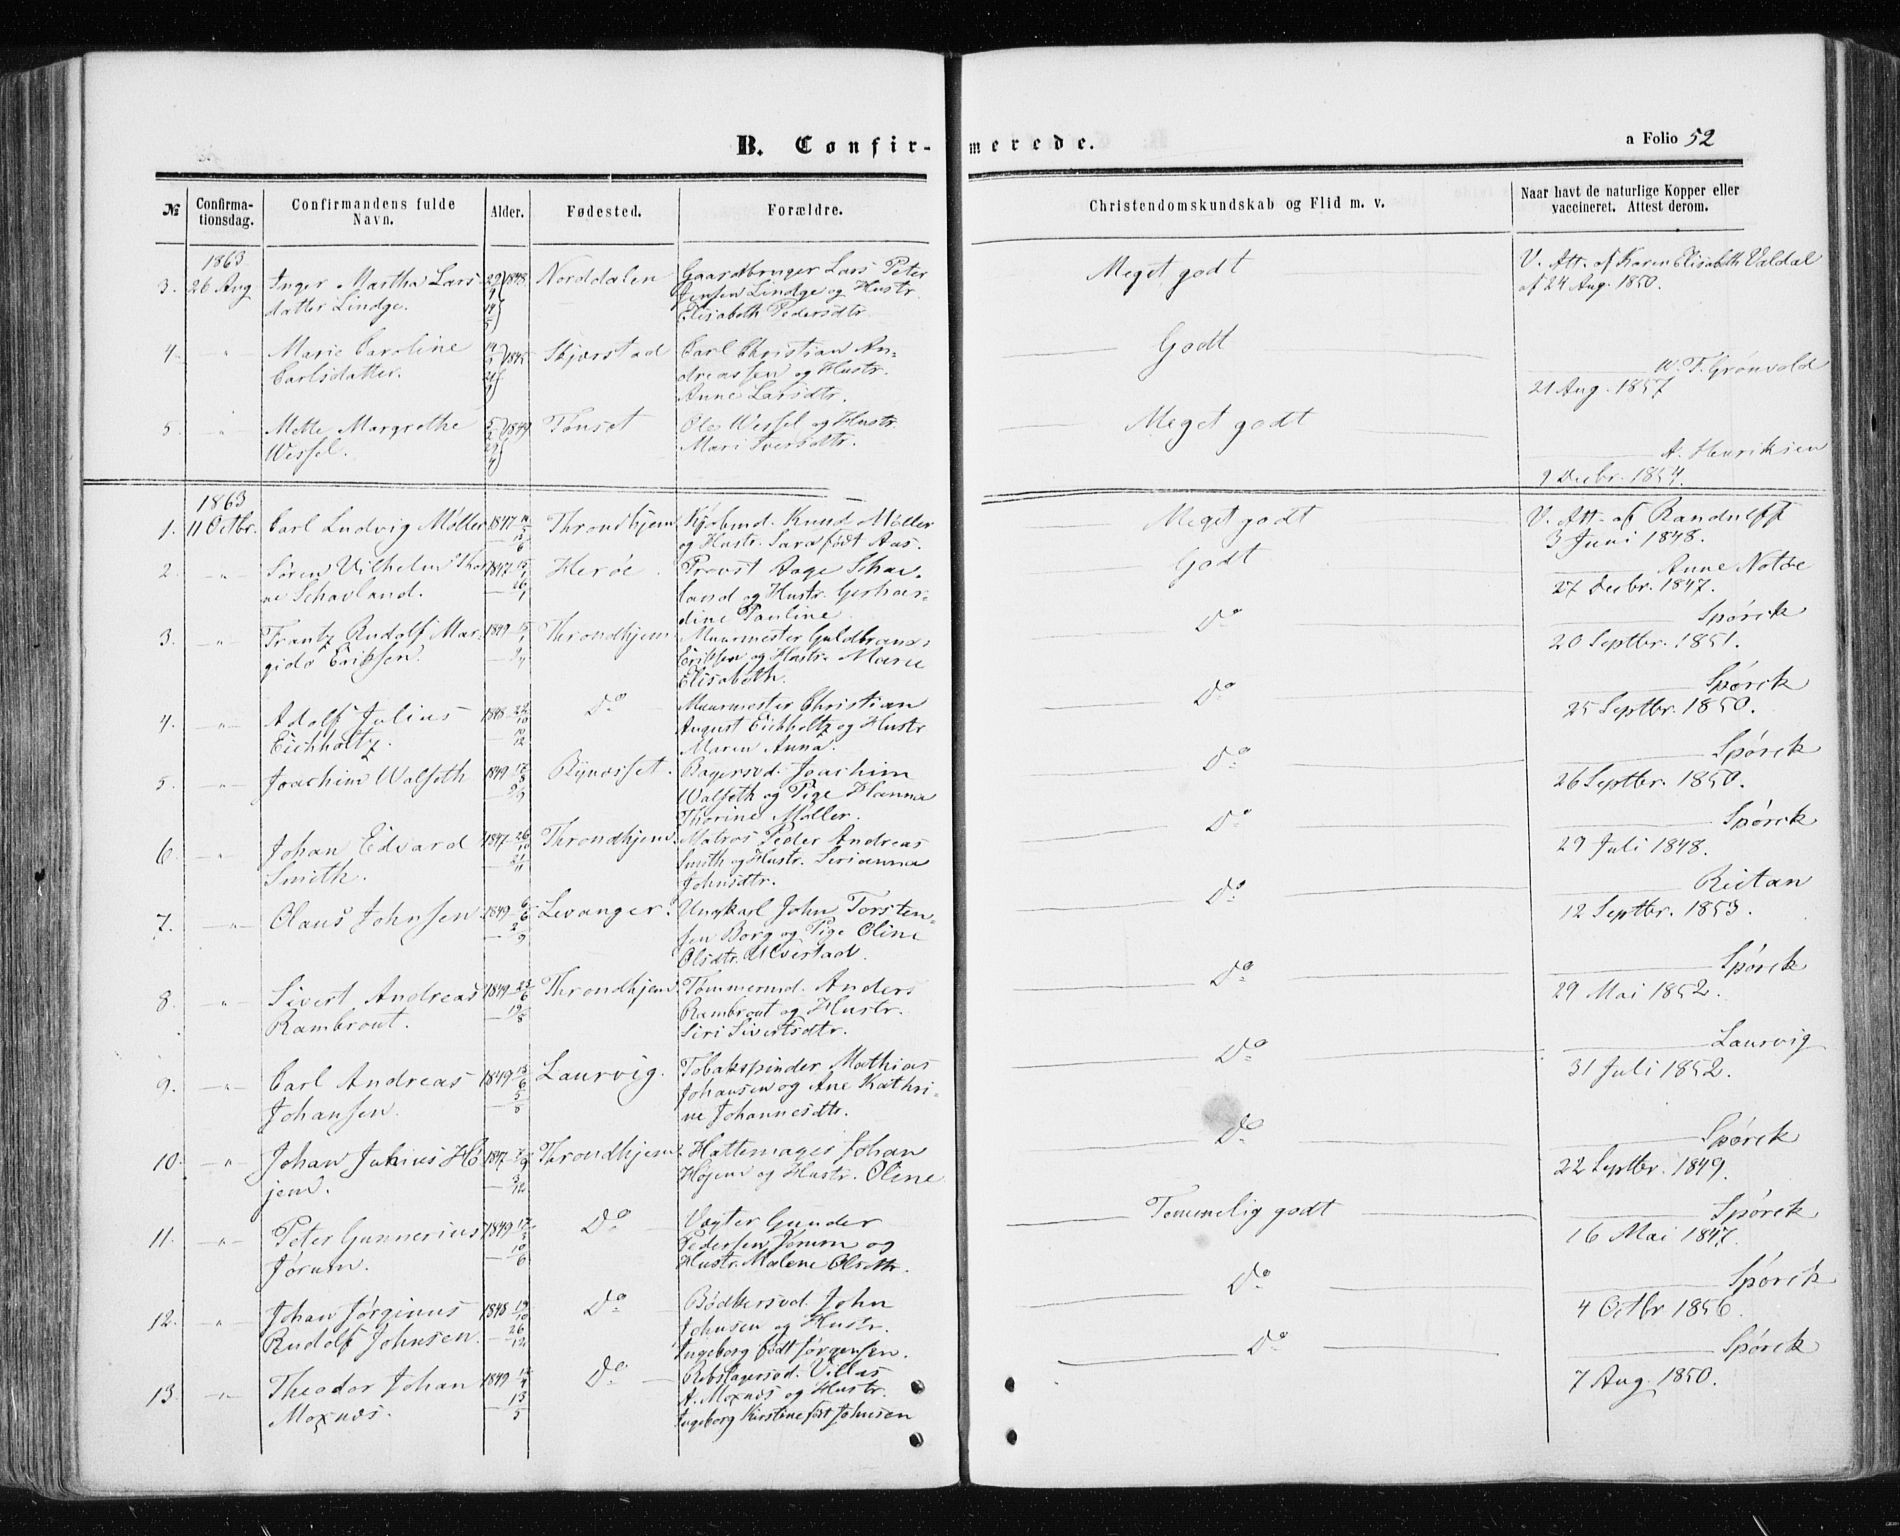 B. Confir-
merede.
a Folio 52
№
Confirma-
tionsdag.
Confirmandens fulde
Navn.
Alder.
Fødested.
Forældre.
Christendomskundskab og Flid m. v.
Naar havt de naturlige Kopper eller
vaccineret. Attest derom.
1863
3. 26 Aug Inger Martha Lars 1848 Norddalen Gaardbruger Lars Peter Meget godt V. Att. af Karen Elisabeth Valdal
datter Lindge. Jensen Lindge og Hustr. af 24 Aug. 1850.
Elisabeth Pedersdtr.
4. " Marie Caroline Skjerstad Carl Christian An- Godt W. F. Grønvold
Carlsdatter. dreassen og Hustr. 21 Aug. 1857
Anne Larsdtr.
5. " Mette Margrethe Tønset Ole Wessel og Hustr. Meget godt A. Henriksen
Wessel. Mari Iversdtr. 9 Decbr. 1854.
1863
1. 11 Octbr. Carl Ludvig Møller 1847 Throndhjem Kjøbmd. Knud Møller Meget godt V. Att. af Randulff
og Hustr. Sara født Aas. 3 Juni 1848.
2. " Søren Vilhelm Tho 1847 Herøe. Provst Aage Schav- Godt Anne Notøe
Schavland. land og Hustr. Gerhar- 27 Decbr. 1847.
dine Pauline
3. " Frantz Rudolf Mar- 1849 Throndhjem Muurmester Guldbrand Do Spørck
gido Eriksen. Eriksen og Hustr. Marie 20 Septbr. 1851.
Elisabeth.
4. " Adolf Julius 1848 Do Muurmester Christian Do Spørck
Eichholtz. August Eichholtz og Hustr 25 Septbr. 1850.
Maren Anna.
5. " Joachim Walseth 1849 Bynesset. Bagersvd. Joachim Do Spørck
Walseth og Pige Hanna 26 Septbr. 1850.
Thorine Møller.
6. " Johan Edvard 1847 Throndhjem. Matros Peder Andreas Do Spørck
Smith. Smith og Hustr. Serianna 29 Juli 1848.
Johnsdtr.
7. " Olaus Johnsen 1849 Levanger. Ungkarl John Torsten- Do Reitan
sen Borg og Pige Oline 12 Septbr. 1853.
Olsdtr. Ulvestad.
8. " Sivert Andreas 1849 Throndhjem. Tømmermd. Anders Do Spørck
Rambrout. Rambrout og Hustr. 29 Mai 1852.
Siri Sivertsdtr.
9. " Carl Andreas 1849 Laurvig. Tobakspinder Mathias Do Laurvig
Johansen. Johansen og Ane Kathri- 31 Juli 1852.
ne Johannesdtr.
10. " Johan Julius Hø 1847 Throndhjem. Hattemager Johan Do Spørck
jem. Højem og Hustr. Oline 22 Septbr. 1849.
11. " Peter Gunnerius 1849 Do Vægter Gunder Temmelig godt Spørck
Jørum. Pedersen Jørum og 16 Mai 1847.
Hustr. Malene Olsdtr.
12. " Johan Jørginus 1848 Do Bødkersvd. John Do Spørck
Rudolf Johnsen. Johnsen og Hustr. 4 Octbr 1856.
Ingeborg født Jørgensen.
13. " Theodor Johan 1849 Do Rebslagersvd. Villas Do Spørck
Moxnes. A. Moxnes og Hustr. 7 Aug. 1850.
Ingeborg Kirstine født Johnsen